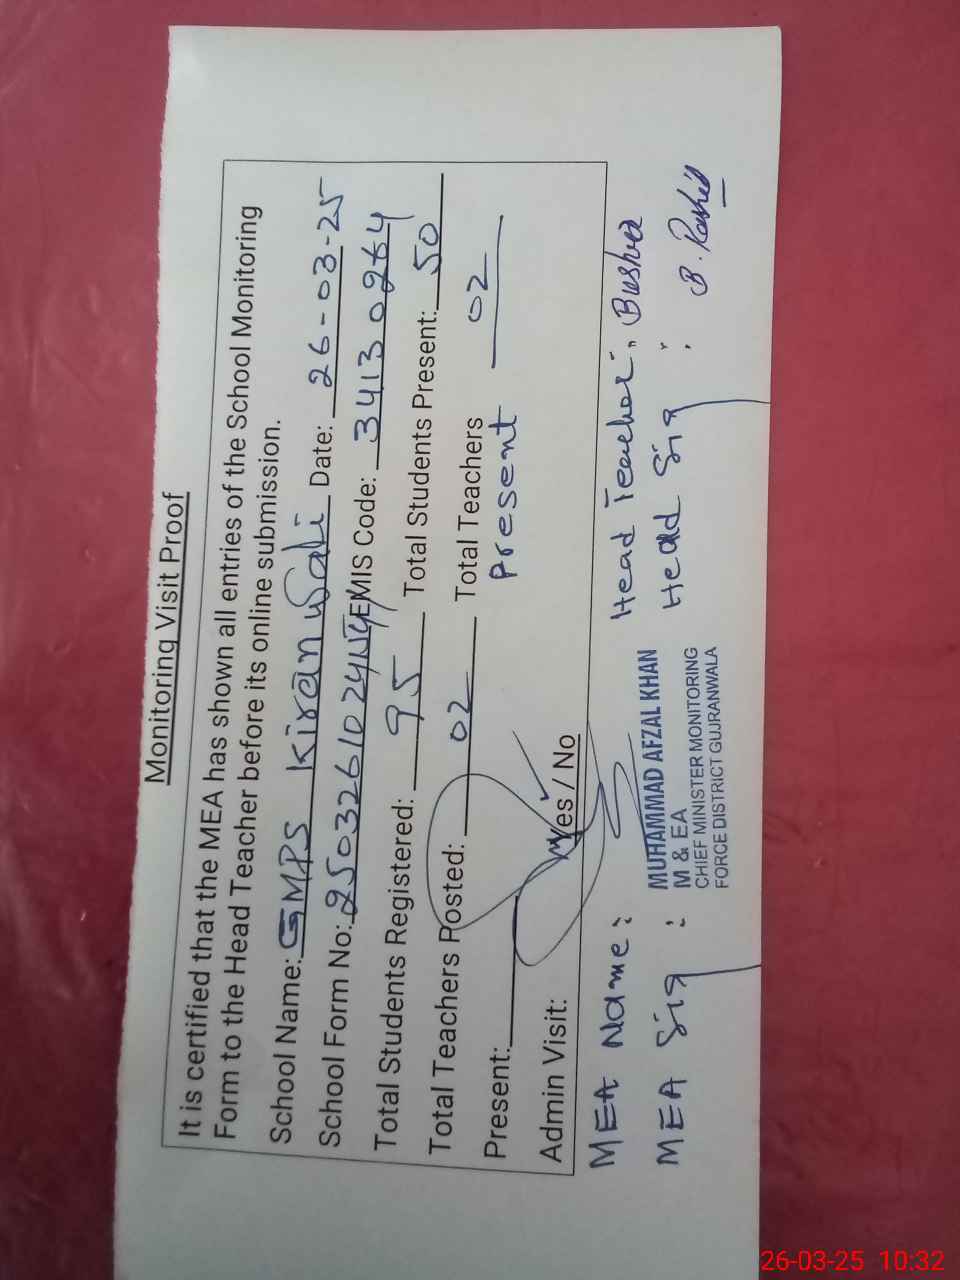 Monitoring Visit Proof
It is certified that the MEA has shown all entries of the School Monitoring
Form to the Head Teacher before its online submission.
School Name: GMPS Kiranwali Date: 26-03-25
School Form No: EMIS Code: 34130264
Total Students Registered: 95 Total Students Present: 50
Total Teachers Posted: 02 Total Teachers 02
Present: Present
Admin Visit: Yes / No
MEA Name: MUHAMMAD AFZAL KHAN Head Teacher: Bushra
M & EA
MEA Sig : CHIEF MINISTER MONITORING Head Sig : B. Rashid
FORCE DISTRICT GUJRANWALA
26-03-25 10:32